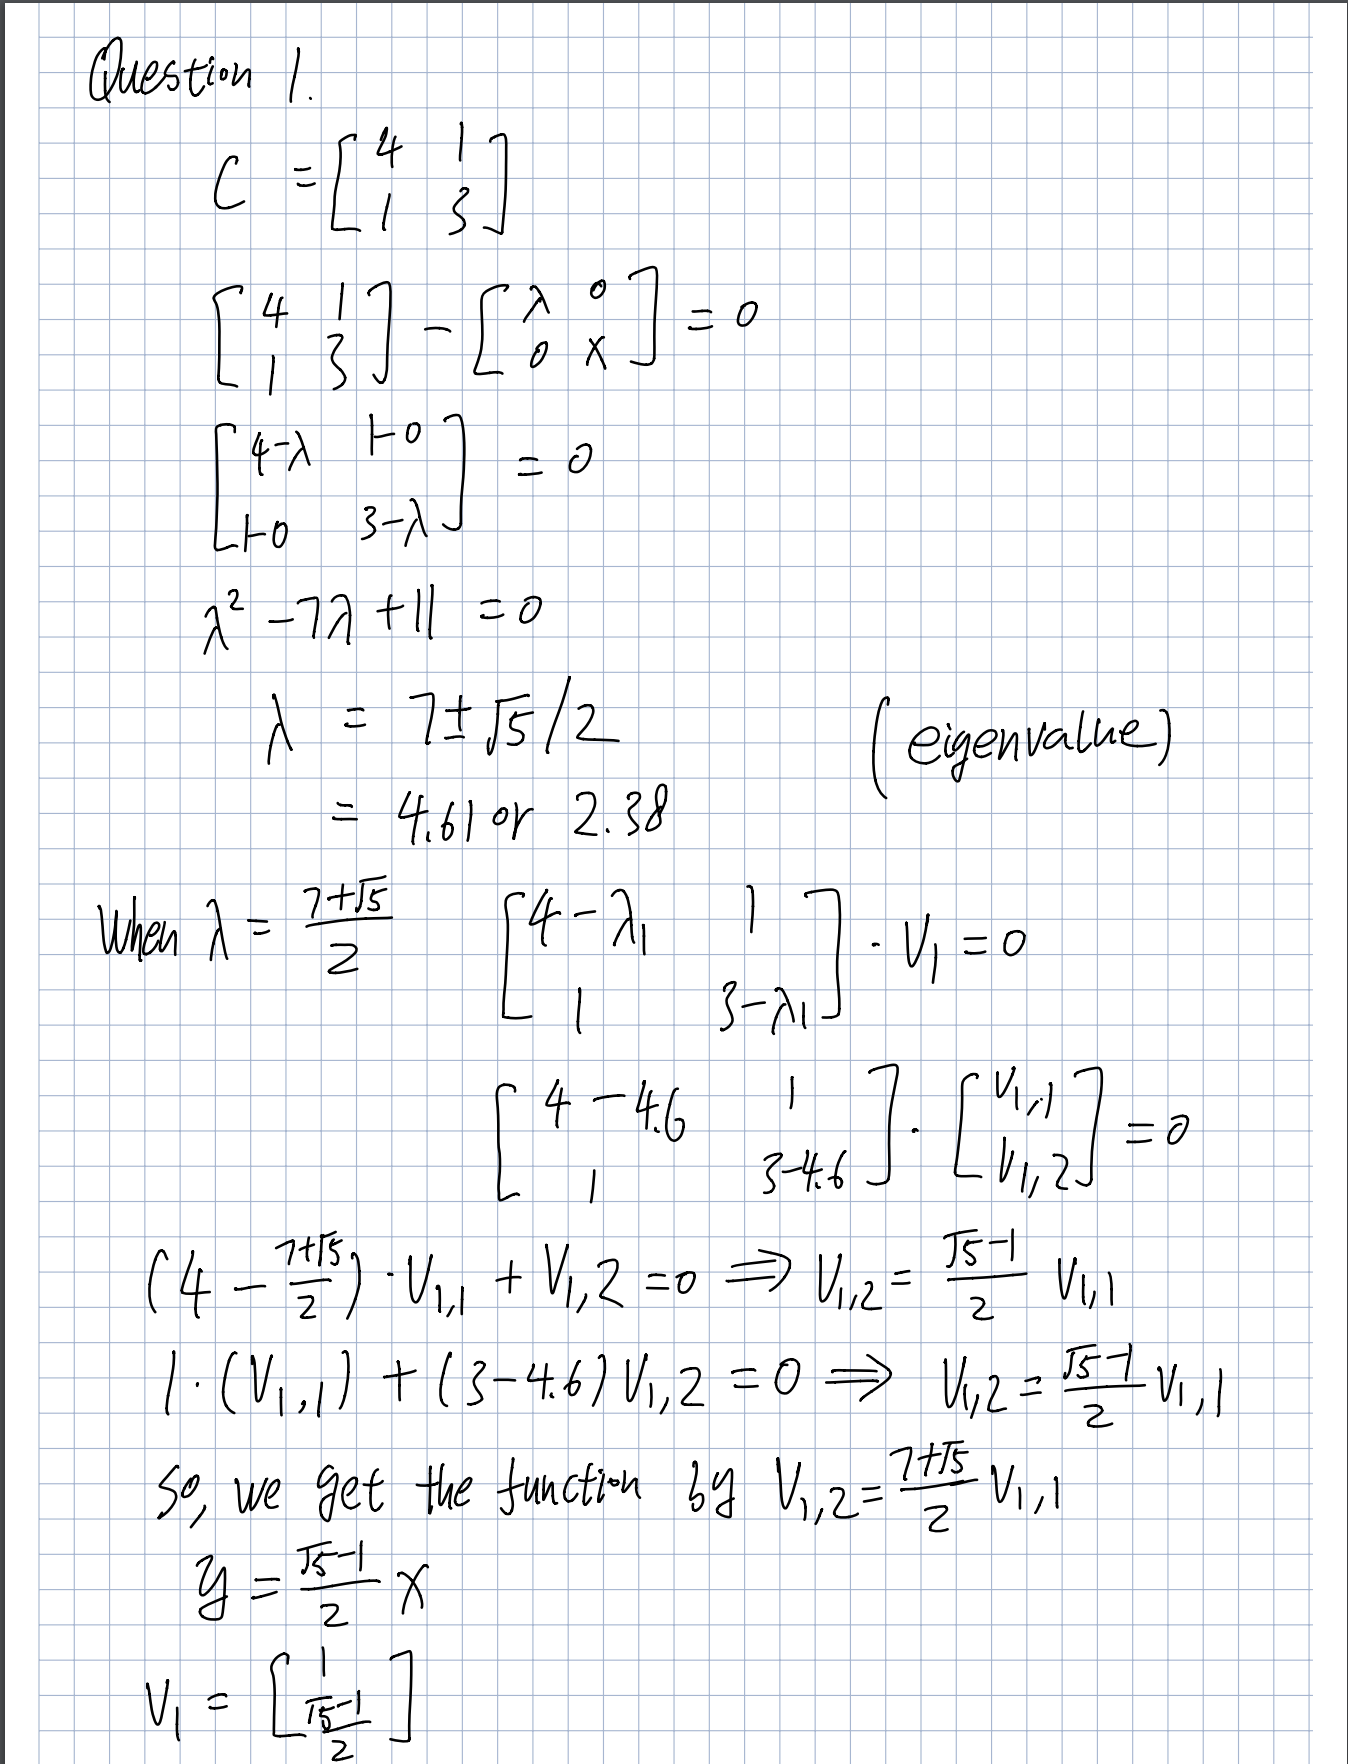 Question 1.
C = [4 1; 1 3]
[4 1; 1 3] - [λ 0; 0 x] = 0
[4-λ 1-0; 1-0 3-λ] = 0
λ² - 7λ + 11 = 0
λ = 7±√5/2 (eigenvalue)
= 4.61 or 2.38
When λ = (7+√5)/2 [4-λ₁ 1; 1 3-λ₁] · V₁ = 0
[4-4.6 1; 1 3-4.6] · [V₁,₁; V₁,₂] = 0
(4 - (7+√5)/2) · V₁,₁ + V₁,₂ = 0 ⇒ V₁,₂ = (√5-1)/2 V₁,₁
1·(V₁,₁) + (3-4.6) V₁,₂ = 0 ⇒ V₁,₂ = (√5-1)/2 V₁,₁
So, we get the function by V₁,₂ = (7+√5)/2 V₁,₁
y = (√5-1)/2 x
V₁ = [1; (√5-1)/2]